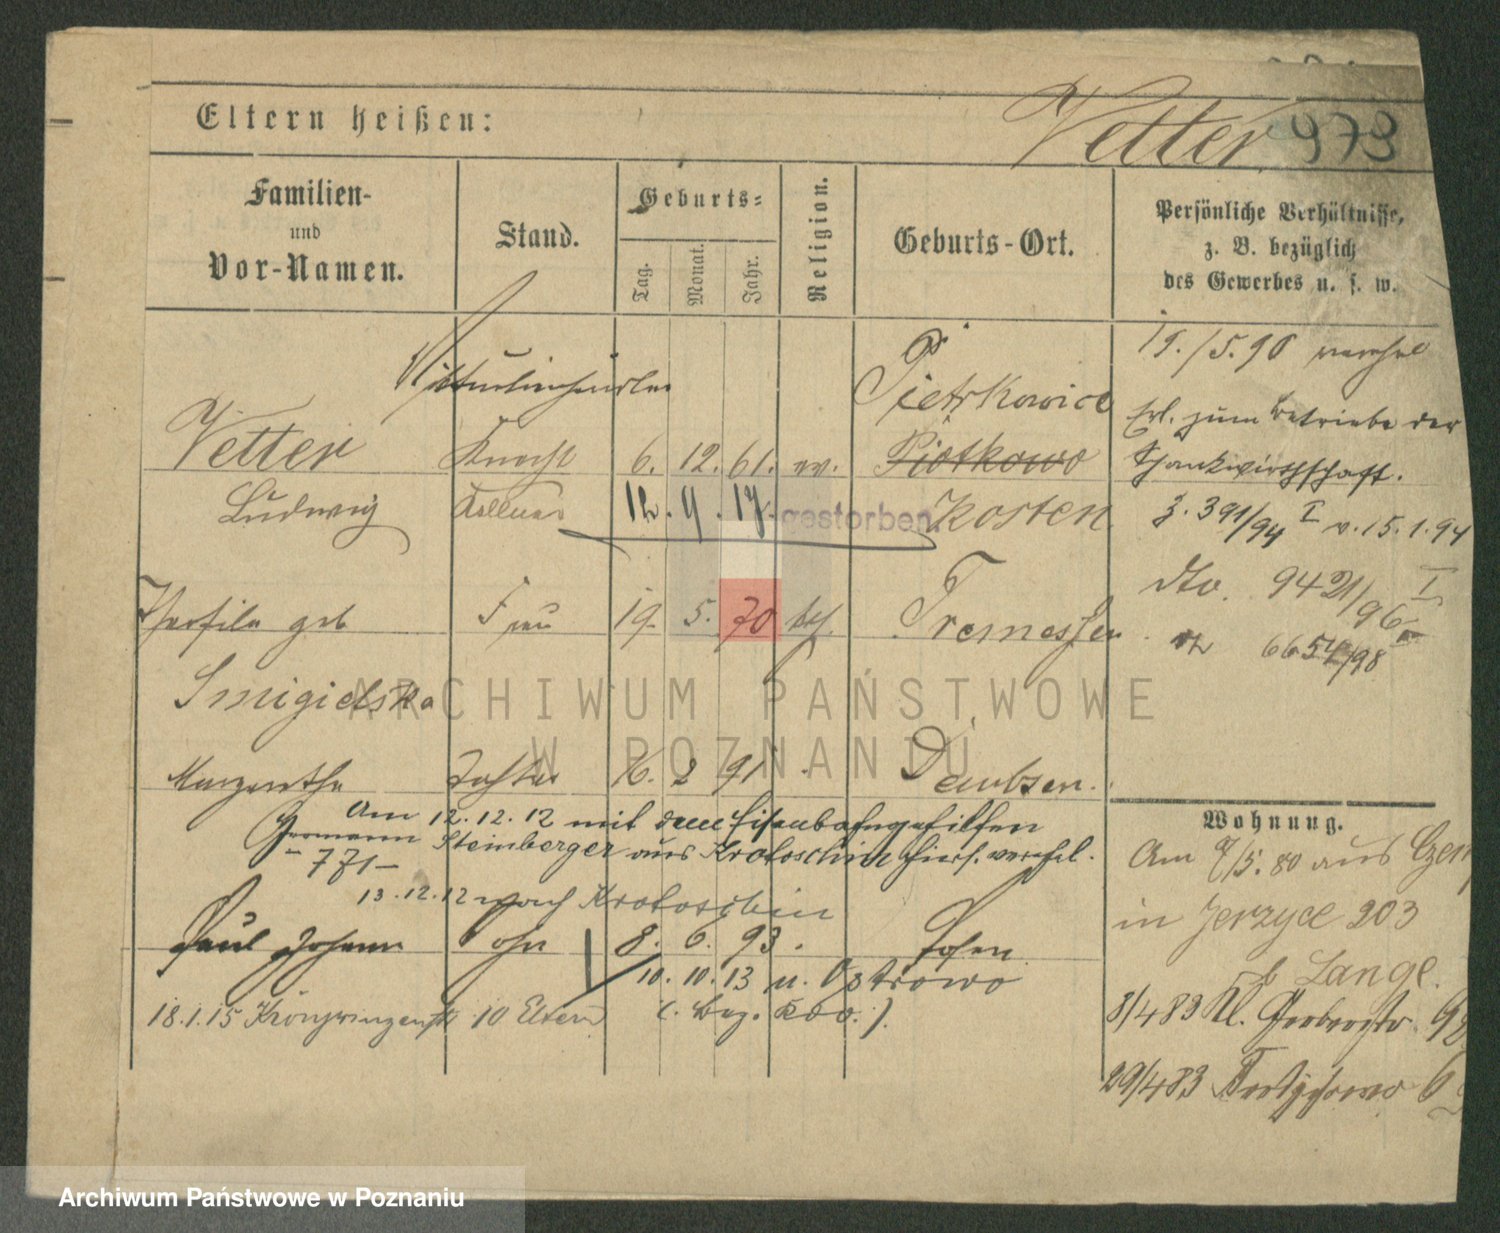 Eltern heißen:
Vetter 973
Familien-
und
Vor-Namen.
Stand.
Geburts-
Tag.
Monat.
Jahr.
Religion.
Geburts-Ort.
Persönliche Verhältnisse,
z. B. bezüglich
des Gewerbes u. s. w.
19./5.90 verehel
Pietrkowice
Erl. zum Betriebe der
Vetter Knecht 6. 12. 61. ev. Piotkowo
Schankwirthschaft.
Ludwig Kellner 12. 9. 17. gestorben Kosten
J. 391/94 I v. 15.1.94
dto. 9421/96 I
Theofila geb Frau 19. 5. 70 kath. Tremessen
6654/98
Smigielska
ARCHIWUM PAŃSTWOWE
W POZNANIU
Margarethe Tochter 16. 2 91. Dembsen.
Am 12.12.12 mit dem Eisenbahngehilfen
Hermann Steinberger aus Krotoschin hier verehel.
- 771 -
13.12.12 nach Krotoschin
Paul Johann Sohn 8. 6. 93. Posen
10. 10. 13 n. Ostrowo
18.1.15 Kronprinzenstr 10 Eltern (. Bez. Kdo .).
Wohnung.
Am 9/5. 80 aus
in Jerzyce 203
b Lange.
8/4 83 Kl. Gerberstr
29/4 83
Archiwum Państwowe w Poznaniu